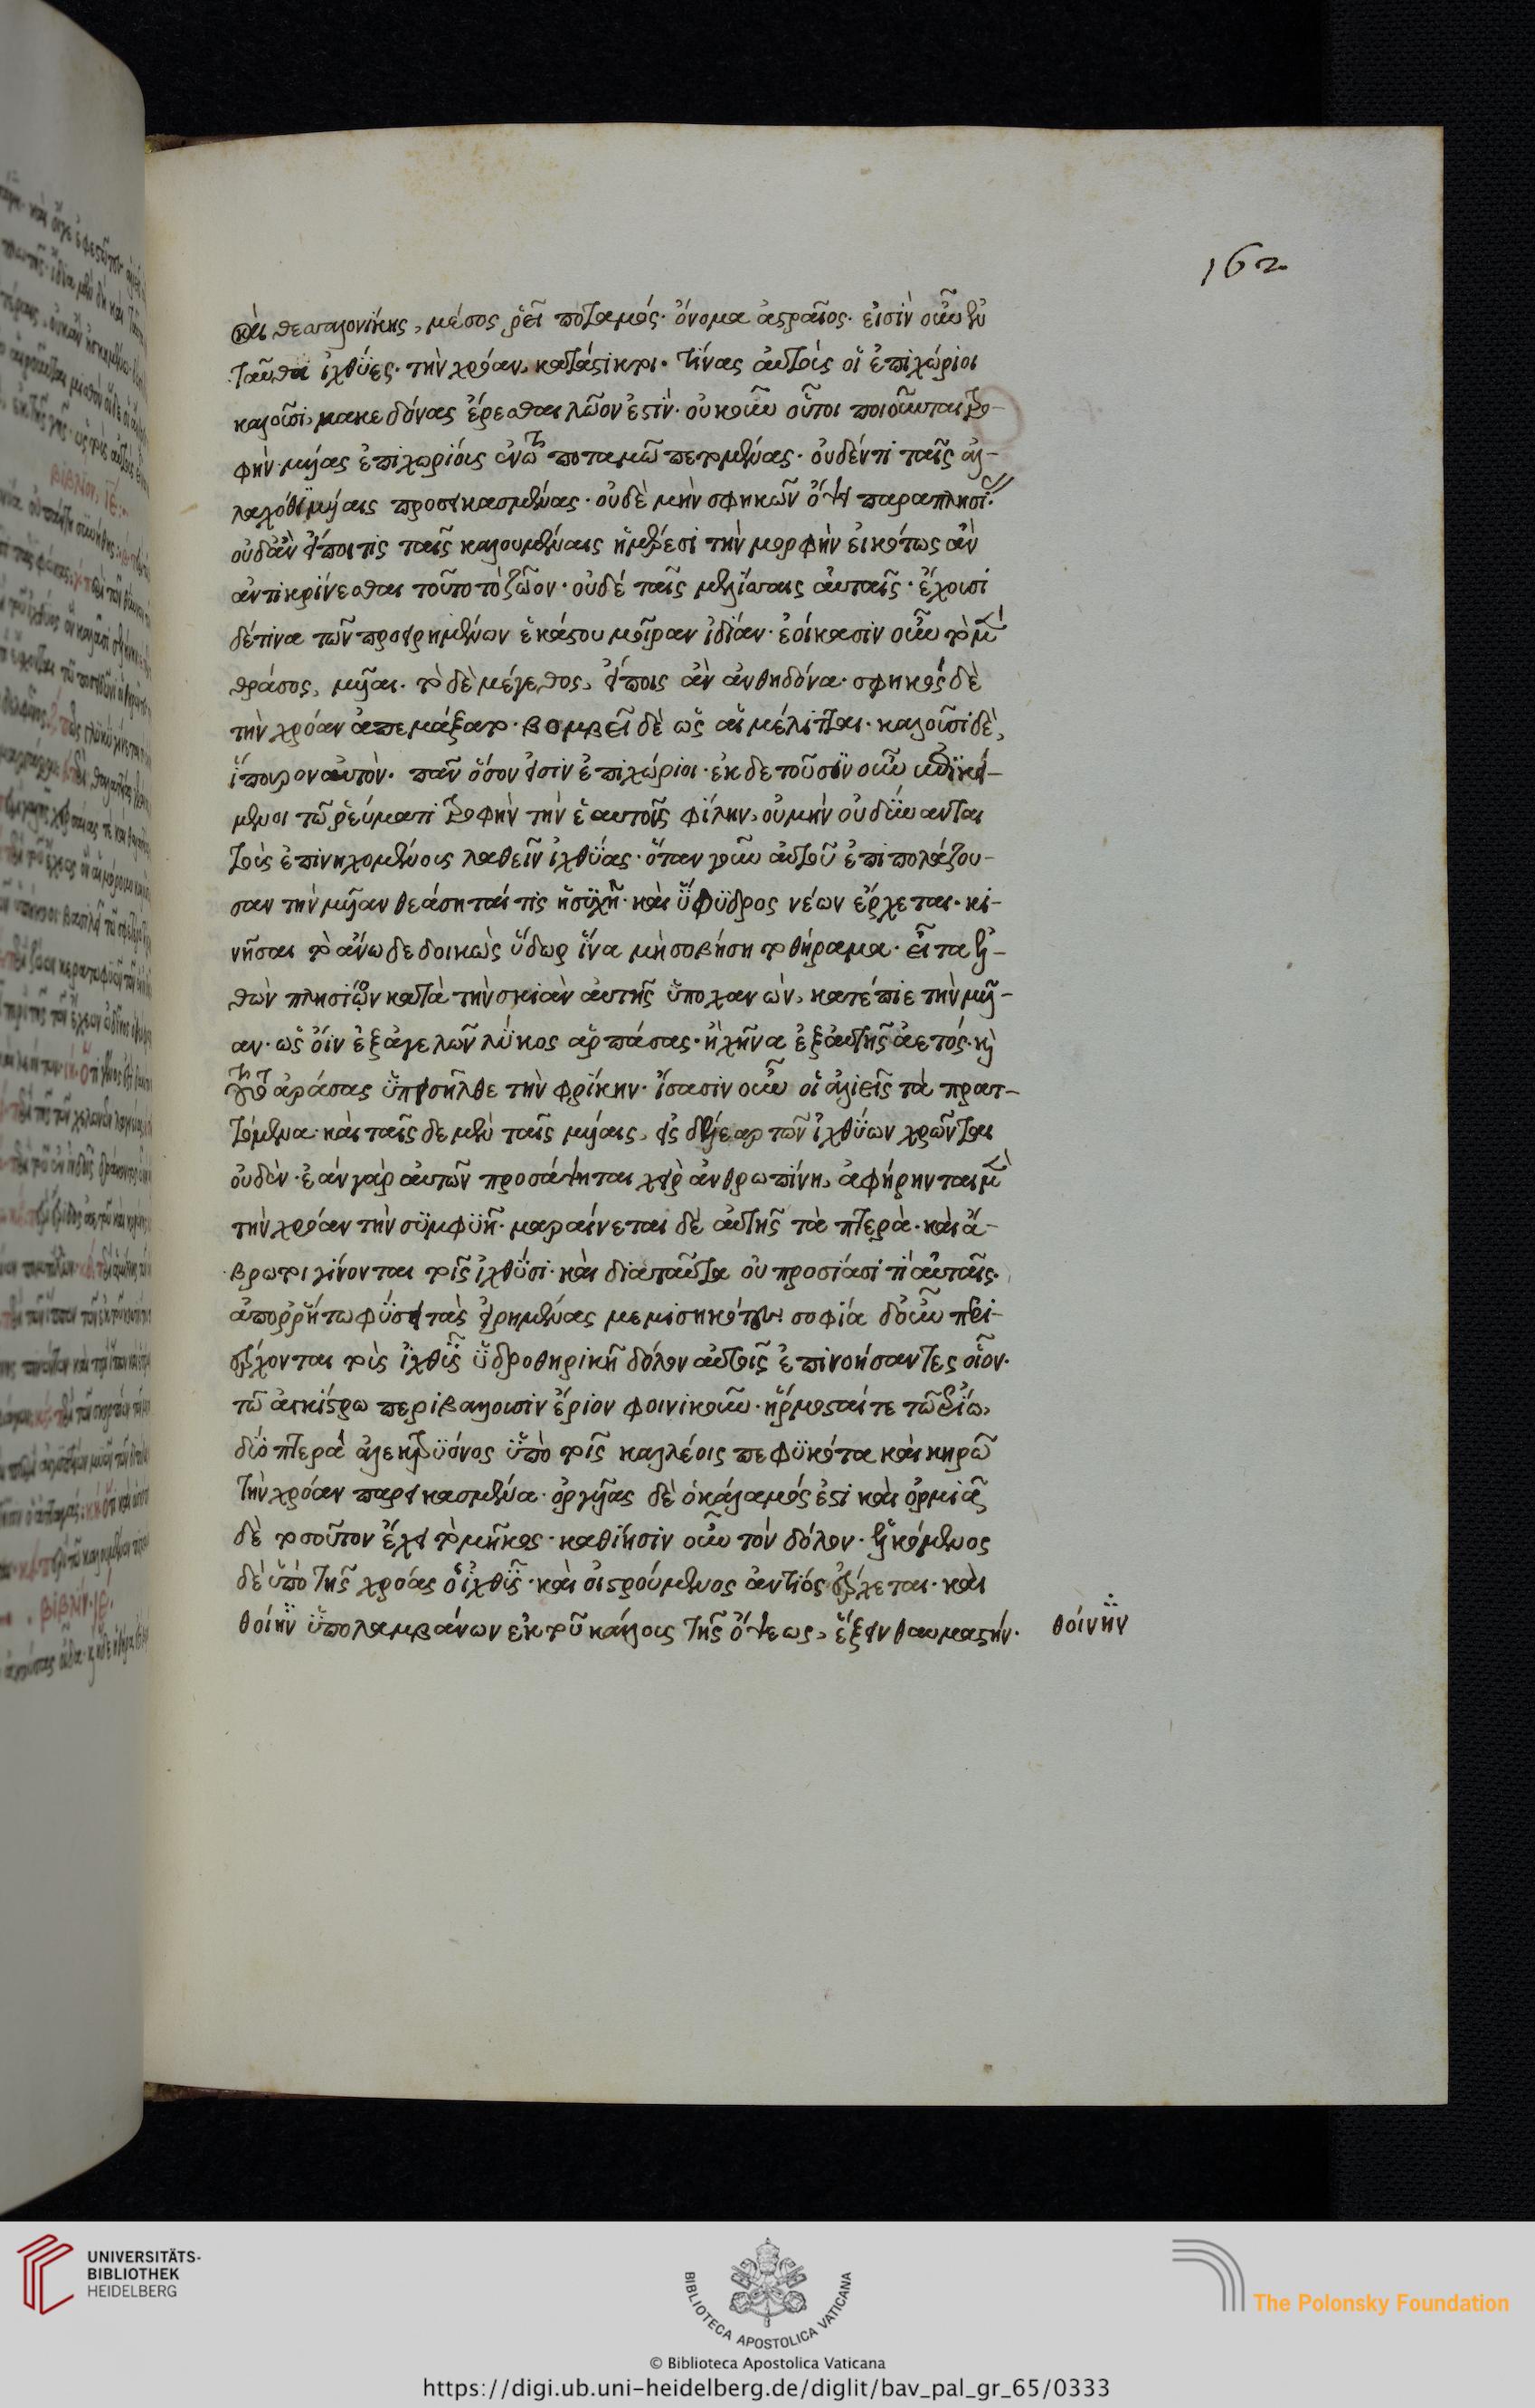 162
καὶ θεσσαλονίκης, μέσος ῥεῖ ποταμός· ὄνομα ἀστραῖος· εἰσὶν οὖν ἐν
ταῦθα ἰχθύες· τὴν χρόαν, κατάστικτοι· τίνας αὐτοὺς οἱ ἐπιχώριοι
καλοῦσι, μακεδόνας ἔρεσθαι λῶον ἐστὶν· οὐκοῦν οὗτοι ποιοῦνται τρο-
φὴν μυίας ἐπιχωρίους ἐν τῶ ποταμῶ πετομένας· οὐδέν τι ταῖς ἀλ-
λαχόθι μυίαις προσεικασμένας· οὐδὲ μὴν σφηκῶν ὄψει παραπλησί
οὐδ' ἂν εἴποι τὶς ταῖς καλουμέναις ἡμέρεσι τὴν μορφὴν εἰκότως ἂν
ἀντικρίνεσθαι τοῦτο τὸ ζῶον· οὐδέ ταῖς μελίσσαις αὐταῖς· ἔχουσι
δέ τινα τῶν προειρημένων ἑκάστου μοῖραν ἰδίαν· ἐοίκασιν οὖν τὸ μὲν
θράσος, μυῖαι· τὸ δὲ μέγεθος, εἴποις ἂν ἀνθηδόνα· σφηκὸς δὲ
τὴν χρόαν ἀπεμάξατο· βομβεῖ δὲ ὡς αἱ μέλιτται· καλοῦσι δὲ,
ἵππουρον αὐτὸν· πᾶν ὅσον εἰσὶν ἐπιχώριοι·
μενοι τῶ ῥεύματι τροφὴν τὴν ἑαυτοῖς φίλην, οὐ μὴν οὐ δύνανται
τοὺς ἐπινηχομένους λαθεῖν ἰχθύας· ὅταν γοῦν αὐτοῦ ἐπιπολάζου-
σαν τὴν μυῖαν θεάσηταί τις ἡσυχῆ· καὶ ὕφυδρος νέων ἔρχεται· κι-
νῆσαι τὸ ἄνω δεδοικὼς ὕδωρ ἵνα μὴ σοβήση τὸ θήραμα· εἶτα ἐλ-
θὼν πλησίον κατὰ τὴν σκιὰν αὐτῆς ὑποχανὼν, κατέπιε τὴν μυῖ-
αν· ὡς οἶν ἐξ ἀγελῶν λύκος ἁρπάσας· ἢ χῆνα ἐξ αὐλῆς ἀετός· καὶ
τοῦτο δράσας ὑπεισῆλθε τὴν φρίκην· ἴσασιν οὖν οἱ ἁλιεῖς τὰ πρατ-
τόμενα· καὶ ταῖς δε μὲν ταῖς μυίαις, εἰς δέλεαρ τῶν ἰχθύων χρῶνται
οὐδὲν· ἐὰν γὰρ αὐτῶν προσάψηται χεὶρ ἀνθρωπίνη, ἀφήρηνται μὲν
τὴν χρόαν τὴν συμφυῆ· μαραίνεται δὲ αὐτῆς τὰ πτερὰ· καὶ ἄ-
βρωτοι γίνονται τοῖς ἰχθύσι· καὶ διαταῦτα οὐ προσίασί τι αὐταῖς·
ἀπορρήτω φύσει τὰς εἰρημένας μεμισηκότων σοφία
έρχονται τοὺς ἰχθῦς ὑδροθηρικῆ δόλον αὐτοῖς ἐπινοήσαντες οἷον·
τῶ ἀγκίστρω περιβάλουσιν ἔριον φοινικοῦν· ἥρμοσταί τε τῶ ἐρίω,
δύο πτερὰ ἀλεκτρυόνος ὑπὸ τοῖς καλλέοις πεφυκότα καὶ κηρῶ
τὴν χρόαν παρεικασμένα· ὀργυῖας δὲ ὁ κάλαμός ἐστι καὶ ὁρμιὰ
δὲ τοσοῦτον ἔχει τὸ μῆκος· καθίησιν οὖν τὸν δόλον· ἑλκόμενος
δὲ ὑπὸ τῆς χρόας ὁ ἰχθῦς· καὶ οἰστρούμενος ἀντίος ἔρχεται· καὶ
θοίνην ὑπολαμβάνων ἐκ τοῦ κάλλους τῆς ὄψεως, ἕξειν θαυμαστήν·
θοίνην
UNIVERSITÄTS-
BIBLIOTHEK
HEIDELBERG
BIBLIOTECA APOSTOLICA VATICANA
The Polonsky Foundation
© Biblioteca Apostolica Vaticana
https://digi.ub.uni-heidelberg.de/diglit/bav_pal_gr_65/0333